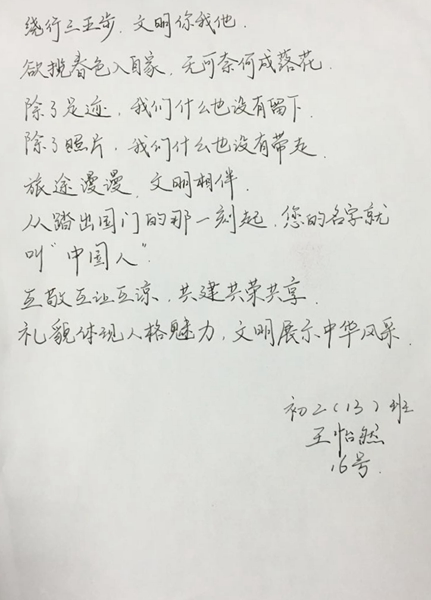 绕行三五步，文明你我他.
欲揽春色入自家，无可奈何成落花.
除了足迹，我们什么也没有留下.
除了照片，我们什么也没有带走.
旅途漫漫，文明相伴.
从踏出国门的那一刻起，您的名字就
叫“中国人”.
互敬互让互谅，共建共荣共享.
礼貌体现人格魅力，文明展示中华风采.
初2（13）班
王怡然
16号.